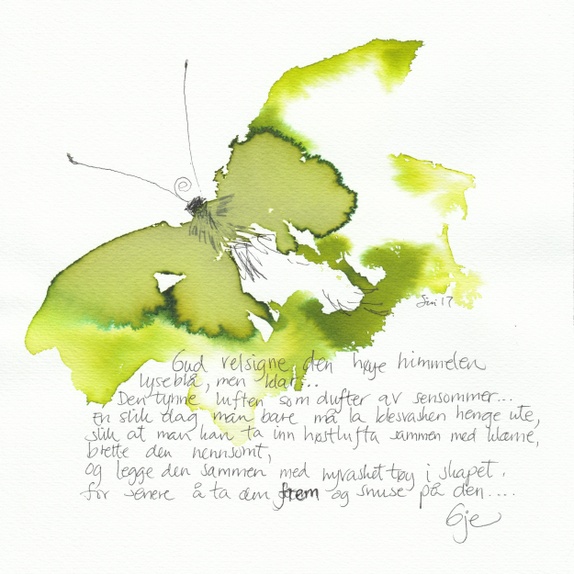 Siri 17
Gud velsigne den høye himmelen
lyseblå, men klar...
Den tynne luften som dufter av sensommer...
En slik dag man bare må la klesvasken henge ute,
slik at man kan ta inn høstlufta sammen med klærne,
brette den nennsomt,
og legge den sammen med nyvasket tøy i skapet.
for senere å ta dem frem og snuse på den....
Gje